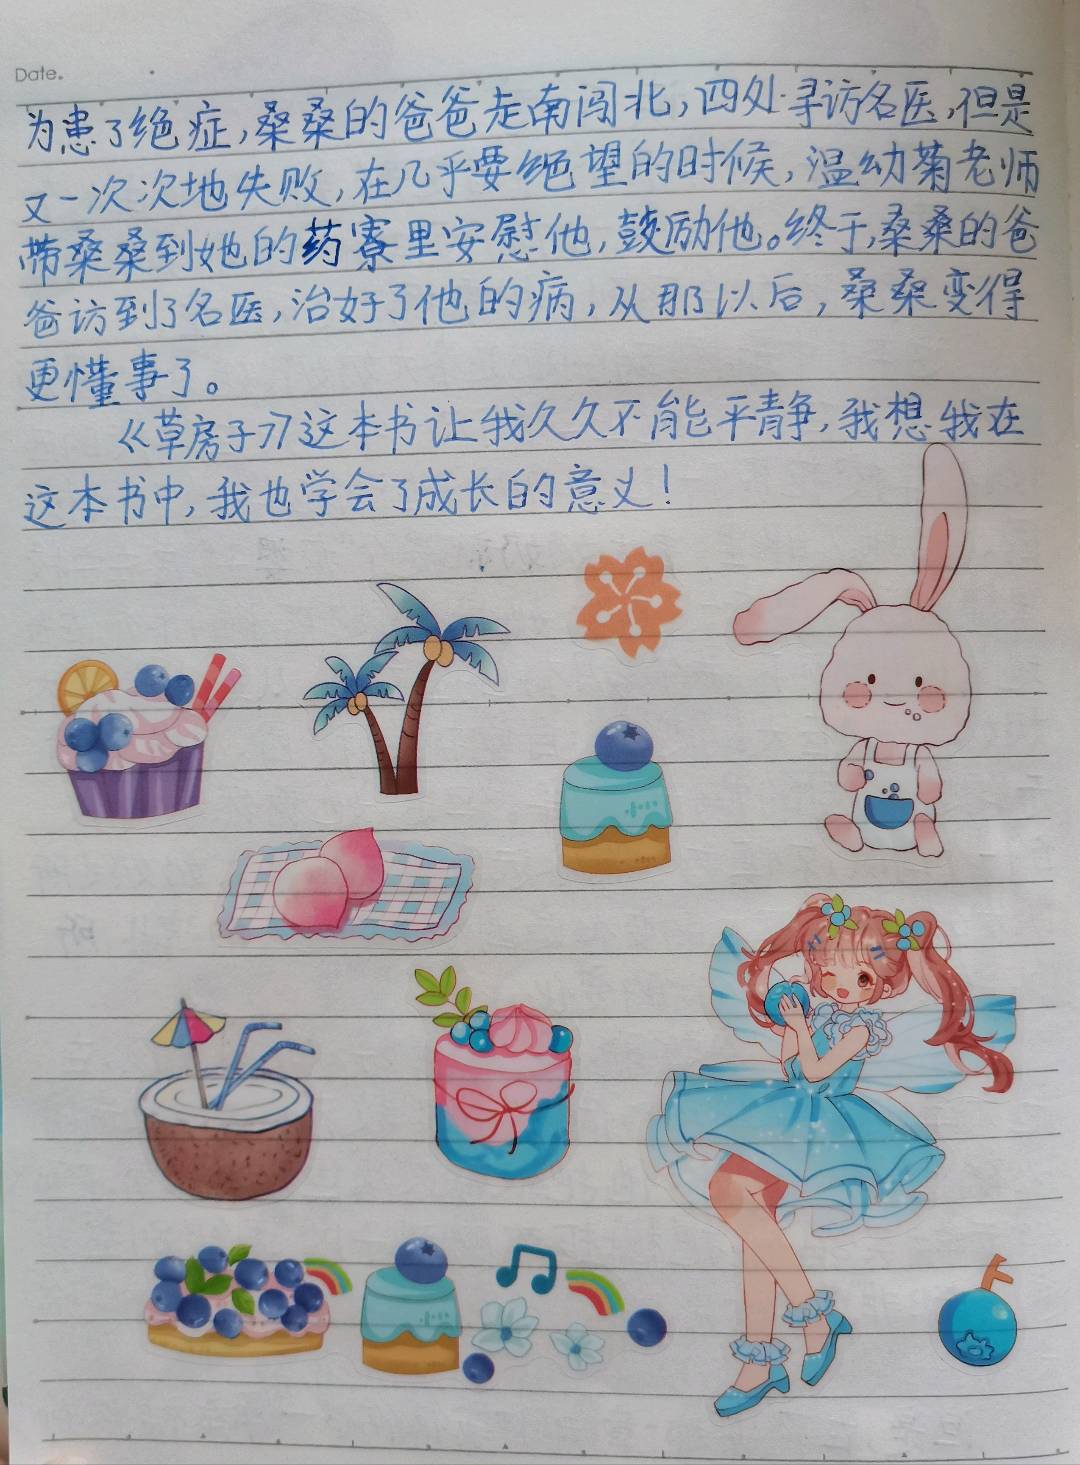 Date.
为患了绝症,桑桑的爸爸走南闯北,四处寻访名医,但是
又一次次地失败,在几乎要绝望的时候,温幼菊老师
带桑桑到她的药寮里安慰他,鼓励他。终于,桑桑的爸
爸访到了名医,治好了他的病,从那以后,桑桑变得
更懂事了。
《草房子》这本书让我久久不能平静,我想我在
这本书中,我也学会了成长的意义!